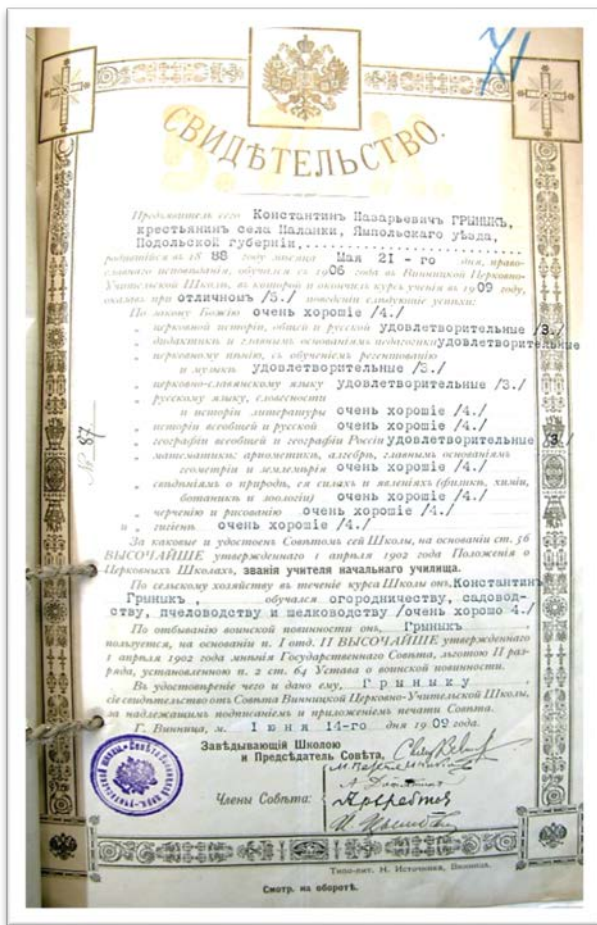 71
СВИДѢТЕЛЬСТВО.
Предъявитель сего Константинъ Назарьевичъ ГРЫНЫКЪ,
крестьянинъ села Маланки, Ямпольскаго уѣзда,
Подольской губерніи,
родившійся въ 1888 году мѣсяца Мая 21 - го дня, право-
славнаго исповѣданія, обучался съ 1906 года въ Винницкой Церковно-
Учительской Школѣ, въ которой и окончилъ курсъ ученія въ 1909 году,
оказавъ при отличномъ /5./ поведеніи слѣдующіе успѣхи:
По закону Божію очень хорошіе /4./
„ церковной исторіи, общей и русской удовлетворительные /3./
„ дидактикѣ и главнымъ основаніямъ педагогики удовлетворительные
„ церковному пѣнію, съ обученіемъ регентованію
и музыкѣ удовлетворительные /3./
„ церковно-славянскому языку удовлетворительные /3./
„ русскому языку, словесности
и исторіи литературы очень хорошіе /4./
„ исторіи всеобщей и русской очень хорошіе /4./
„ географіи всеобщей и географіи Россіи удовлетворительные /3./
„ математикѣ: ариѳметикѣ, алгебрѣ, главнымъ основаніямъ
геометріи и землемѣрія очень хорошіе /4./
„ свѣдѣніямъ о природѣ, ея силахъ и явленіяхъ (физикѣ, химіи,
ботаникѣ и зоологіи) очень хорошіе /4./
„ черченію и рисованію очень хорошіе /4./
и „ гигіенѣ очень хорошіе /4./
№ 87
За каковые и удостоенъ Совѣтомъ сей Школы, на основаніи ст. 56
ВЫСОЧАЙШЕ утвержденнаго 1 апрѣля 1902 года Положенія о
Церковныхъ Школахъ, званія учителя начальнаго училища.
По сельскому хозяйству въ теченіе курса Школы онъ, Константинъ
Грыныкъ, обучался огородничеству, садовод-
ству, пчеловодству и шелководству /очень хорошо 4./
По отбыванію воинской повинности онъ, Грыныкъ
пользуется, на основаніи п. I отд. II ВЫСОЧАЙШЕ утвержденнаго
1 апрѣля 1902 года мнѣнія Государственнаго Совѣта, льготою II раз-
ряда, установленною п. 2 ст. 64 Устава о воинской повинности.
Въ удостовѣреніе чего и дано ему, Грыныку
сіе свидѣтельство отъ Совѣта Винницкой Церковно-Учительской Школы,
за надлежащимъ подписаніемъ и приложеніемъ печати Совѣта.
Г. Винница, м. Іюня 14-го дня 1909 года.
Завѣдывающій Школою
и Предсѣдатель Совѣта,
Члены Совѣта:
Типо-лит. Н. Источника, Винница.
Смотр. на оборотѣ.